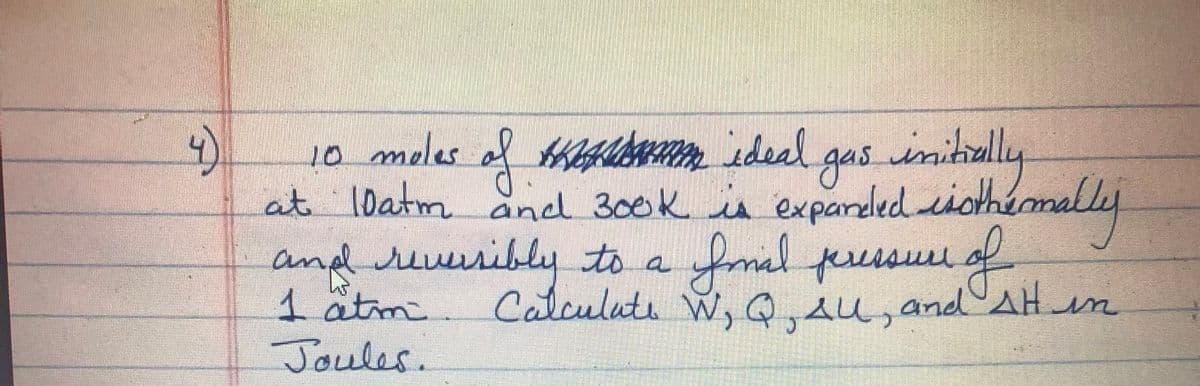 4) 10 moles of ideal gas initially
at 10atm and 300K is expanded isothermally
and reversibly to a final pressure of
1 atm. Calculate W, Q, ΔU, and ΔH in
Joules.